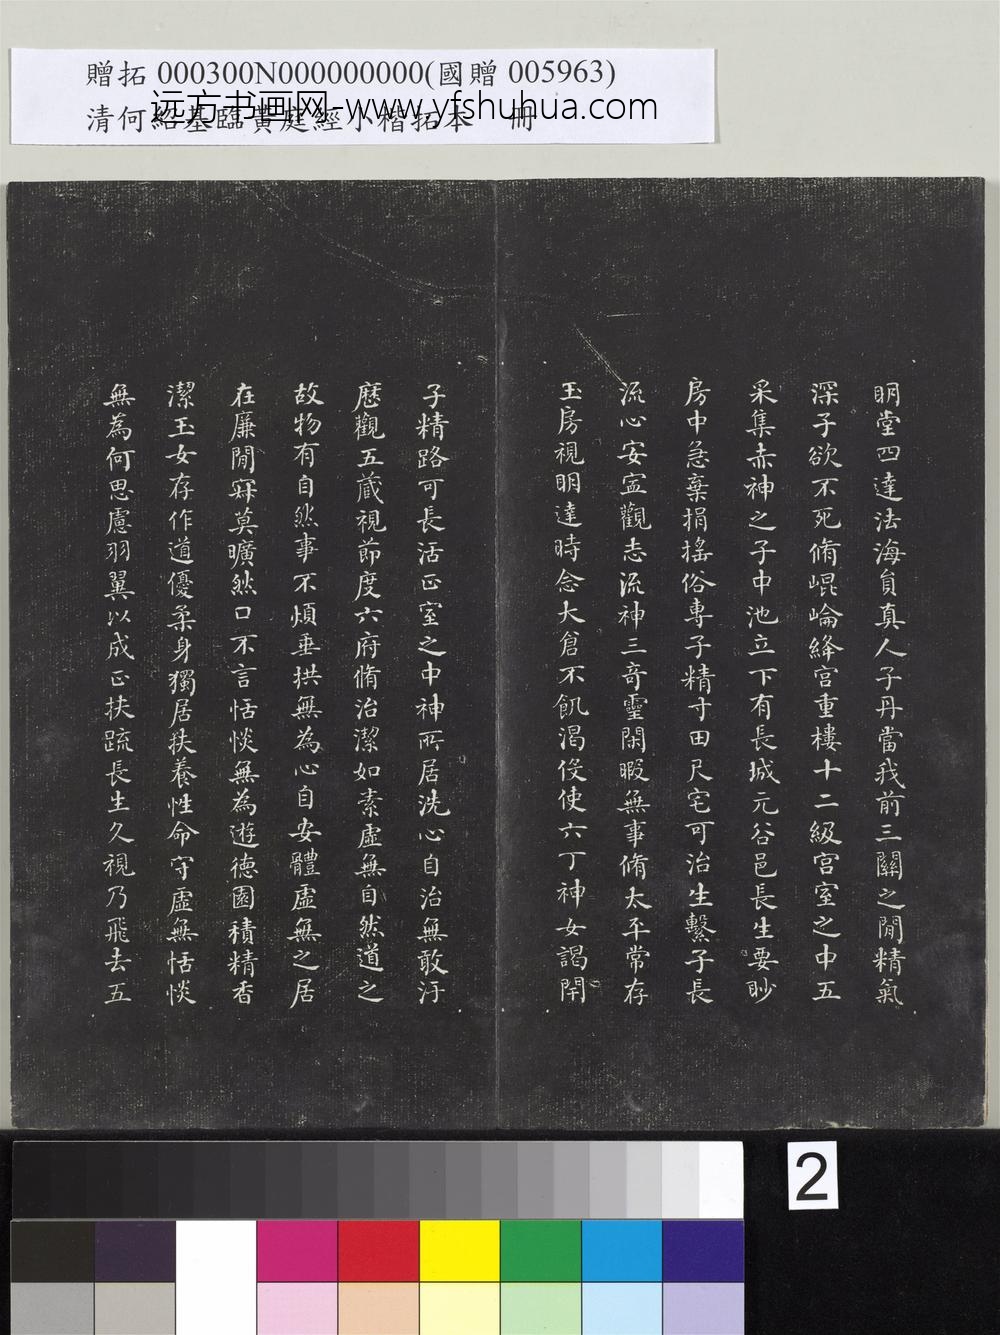 贈拓 000300N000000000(國贈 005963)
清何紹基臨黄庭經小楷拓本 冊
远方书画网-www.yfshuhua.com
明堂四達法海員真人子丹當我前三關之閒精氣
深子欲不死脩崐崘絳宫重樓十二級宫室之中五
采集赤神之子中池立下有長城元谷邑長生要眇
房中急棄捐搖俗專子精寸田尺宅可治生繫子長
流心安寍觀志流神三奇靈閑暇無事脩太平常存
玉房視明達時念大倉不飢渴伇使六丁神女謁閉
子精路可長活正室之中神所居洗心自治無敢汙
歷觀五藏視節度六府脩治潔如素虛無自然道之
故物有自然事不煩垂拱無為心自安體虛無之居
在廉閒寂莫曠然口不言恬惔無為遊德園積精香
潔玉女存作道優柔身獨居扶養性命守虛無恬惔
無為何思慮羽翼以成正扶疏長生久視乃飛去五
2